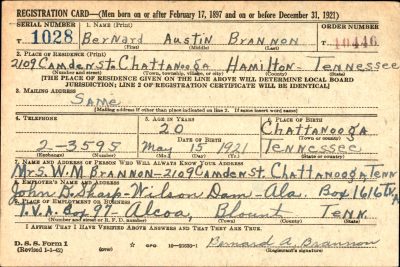 REGISTRATION CARD—(Men born on or after February 17, 1897 and on or before December 31, 1921)
SERIAL NUMBER 1. NAME (Print) ORDER NUMBER
T 1028 Bernard Austin Brannon 10446
(First) (Middle) (Last)
2. PLACE OF RESIDENCE (Print)
2109 Camden St. Chattanooga Hamilton - Tennessee
(Number and street) (Town, township, village, or city) (County) (State)
[THE PLACE OF RESIDENCE GIVEN ON THE LINE ABOVE WILL DETERMINE LOCAL BOARD
JURISDICTION; LINE 2 OF REGISTRATION CERTIFICATE WILL BE IDENTICAL]
3. MAILING ADDRESS
Same
[Mailing address if other than place indicated on line 2. If same insert word same]
4. TELEPHONE 5. AGE IN YEARS 6. PLACE OF BIRTH
20 Chattanooga
DATE OF BIRTH (Town or county)
2-3595 May 15 1921 Tennessee
(Exchange) (Number) (Mo.) (Day) (Yr.) (State or country)
7. NAME AND ADDRESS OF PERSON WHO WILL ALWAYS KNOW YOUR ADDRESS
Mrs. W.M Brannon-2109 Camden St. Chattanooga, Tenn
8. EMPLOYER'S NAME AND ADDRESS
John D. Sharp-Wilson Dam-Ala. Box 1616
9. PLACE OF EMPLOYMENT OR BUSINESS
T.V.A. Box 97 Alcoa, Blount Tenn.
(Number and street or R. F. D. number) (Town) (County) (State)
I AFFIRM THAT I HAVE VERIFIED ABOVE ANSWERS AND THAT THEY ARE TRUE.
D. S. S. Form 1
(Revised 1-1-42) (over) Bernard A. Brannon
(Registrant's signature)